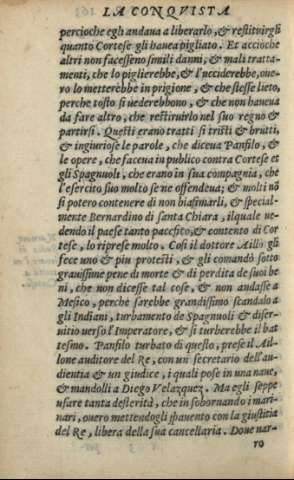 LA CONQVISTA
percioche egli andaua a liberarlo, & restituirgli
quanto Cortese gli hauea pigliato. Et accioche
altri non facesseno simili danni, & mali tratta-
menti, che lo piglierebbe, & l'ucciderebbe, oue-
ro lo metterebbe in prigione, & che stesse lieto,
perche tosto si uederebbono, & che non haueua
da fare altro, che restituirlo nel suo regno &
partirsi. Questi erano tratti si tristi & brutti,
& ingiuriose le parole, che diceua Panfilo, &
le opere, che faceua in publico contra Cortese et
gli Spagnuoli, che erano in sua compagnia, che
l'esercito suo molto se ne offendeua; & molti nõ
si potero contenere di non biasimarli, & special-
mente Bernardino di santa Chiara, ilquale ue-
dendo il paese tanto pacefico, & contento di Cor
tese, lo riprese molto. Cosi il dottore Aillõ gli
fece uno & piu protesti, & gli comandò sotto
grauissime pene di morte & di perdita de suoi be
ni, che non dicesse tal cose, & non andasse a
Mesico, perche sarebbe grandissimo scandalo a
gli Indiani, turbamento de Spagnuoli & diser-
uitio uerso l'Imperatore, & si turberebbe il bat
tesmo. Panfilo turbato di questo, prese il Ail-
lone auditore del Re, con un secretario dell'au-
dientia & un giudice, i quali pose in una naue,
& mandolli a Diego Velazquez. Ma egli seppe
usare tanta desterità, che in subornando i mari-
nari, ouero mettendogli spauento con la giustitia
del Re, libera della sua cancellaria. Doue nar-
ro